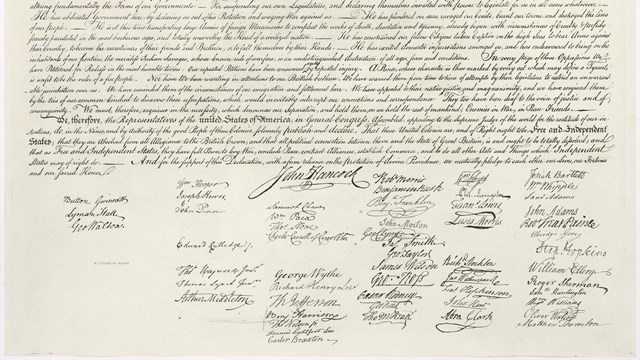 altering fundamentally the Forms of our Governments: — For suspending our own Legislatures, and declaring themselves invested with power to legislate for us in all cases whatsoever. —
He has abdicated Government here, by declaring us out of his Protection and waging War against us. — He has plundered our seas, ravaged our Coasts, burnt our towns, and destroyed the lives
of our people. — He is at this time transporting large Armies of foreign Mercenaries to compleat the works of death, desolation and tyranny, already begun with circumstances of Cruelty & perfidy
scarcely paralleled in the most barbarous ages, and totally unworthy the Head of a civilized nation. — He has constrained our fellow Citizens taken Captive on the high Seas to bear Arms against
their Country, to become the executioners of their friends and Brethren, or to fall themselves by their Hands. — He has excited domestic insurrections amongst us, and has endeavoured to bring on the
inhabitants of our frontiers, the merciless Indian Savages, whose known rule of warfare, is an undistinguished destruction of all ages, sexes and conditions. In every stage of these Oppressions We
have Petitioned for Redress in the most humble terms: Our repeated Petitions have been answered only by repeated injury. A Prince, whose character is thus marked by every act which may define a Tyrant,
is unfit to be the ruler of a free people. Nor have We been wanting in attentions to our Brittish brethren. We have warned them from time to time of attempts by their legislature to extend an unwarrant-
able jurisdiction over us. We have reminded them of the circumstances of our emigration and settlement here. We have appealed to their native justice and magnanimity, and we have conjured them
by the ties of our common kindred to disavow these usurpations, which, would inevitably interrupt our connections and correspondence. They too have been deaf to the voice of justice and of
consanguinity. We must, therefore, acquiesce in the necessity, which denounces our Separation, and hold them, as we hold the rest of mankind, Enemies in War, in Peace Friends. —
We, therefore, the Representatives of the united States of America, in General Congress, Assembled, appealing to the Supreme Judge of the world for the rectitude of our in-
tentions, do, in the Name, and by Authority of the good People of these Colonies, solemnly publish and declare, That these United Colonies are, and of Right ought to be Free and Independent
States; that they are Absolved from all Allegiance to the British Crown, and that all political connection between them and the State of Great Britain, is and ought to be totally dissolved; and
that as Free and Independent States, they have full Power to levy War, conclude Peace, contract Alliances, establish Commerce, and to do all other Acts and Things which Independent
States may of right do. — And for the support of this Declaration, with a firm reliance on the protection of divine Providence, we mutually pledge to each other our Lives, our Fortunes
and our sacred Honor.
Button Gwinnett
Lyman Hall
Geo Walton.
Wm Hooper
Joseph Hewes,
John Penn
Edward Rutledge.
Thos Heyward Junr.
Thomas Lynch Junr.
Arthur Middleton
John Hancock
Samuel Chase
Wm Paca
Thos Stone
Charles Carroll of Carrollton
George Wythe
Richard Henry Lee
Th Jefferson
Benj Harrison
Thos Nelson jr.
Francis Lightfoot Lee
Carter Braxton
Robt Morris
Benjamin Rush
Benj. Franklin
John Morton
Geo Clymer
Jas. Smith
Geo. Taylor
James Wilson
Geo. Ross
Caesar Rodney
Geo Read
Tho M:Kean
Wm Floyd
Phil. Livingston
Frans. Lewis
Lewis Morris
Richd. Stockton
Jno Witherspoon
Fras. Hopkinson
John Hart
Abra Clark
Josiah Bartlett
Wm Whipple
Saml Adams
John Adams
Robt Treat Paine
Elbridge Gerry
Step. Hopkins
William Ellery
Roger Sherman
Saml Huntington
Wm Williams
Oliver Wolcott
Matthew Thornton